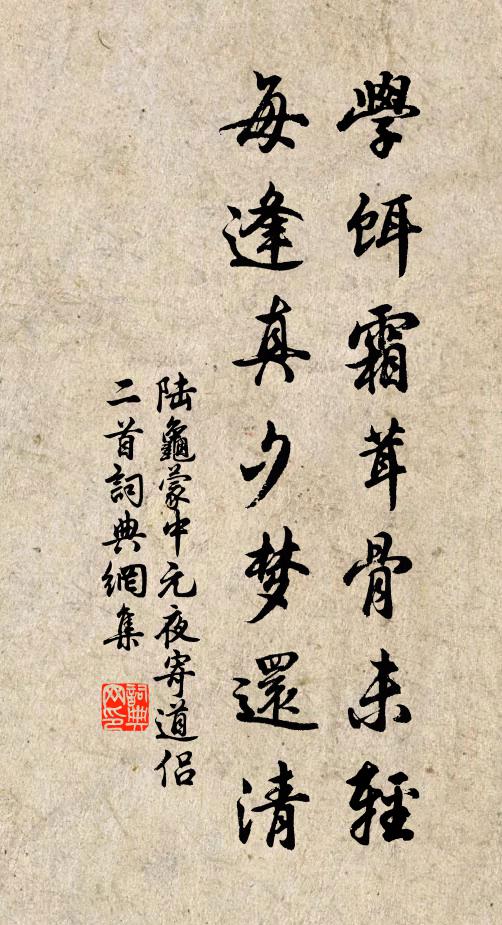 學餌霜茸骨未輕
每逢真夕梦還清
陆龜蒙中元夜寄道侣
二首詞典網集
詞典网印